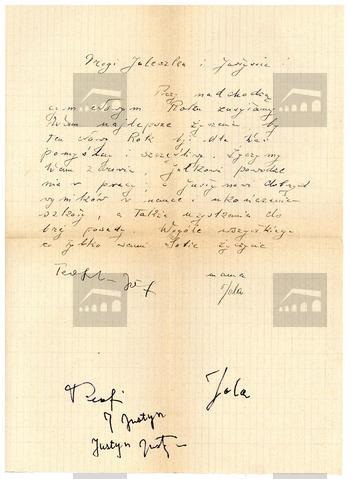 Drogi Juleczku i Justynie!
Przy nadchodzą
cym Nowym Roku zasyłamy
Wam najlepsze życzenia by
Ten Nowy Rok był dla Was
pomyślny i szczęśliwy. Życzymy
Wam zdrowia, Julkowi powodze
nia w pracy, a Justynowi dobrych
wyników w nauce i ukończenia
szkoły, a także uzyskania do
brej posady. Wogóle wszystkiego
co tylko sami Sobie życzycie
mama
Jola
Jola
Justyn
Justyn